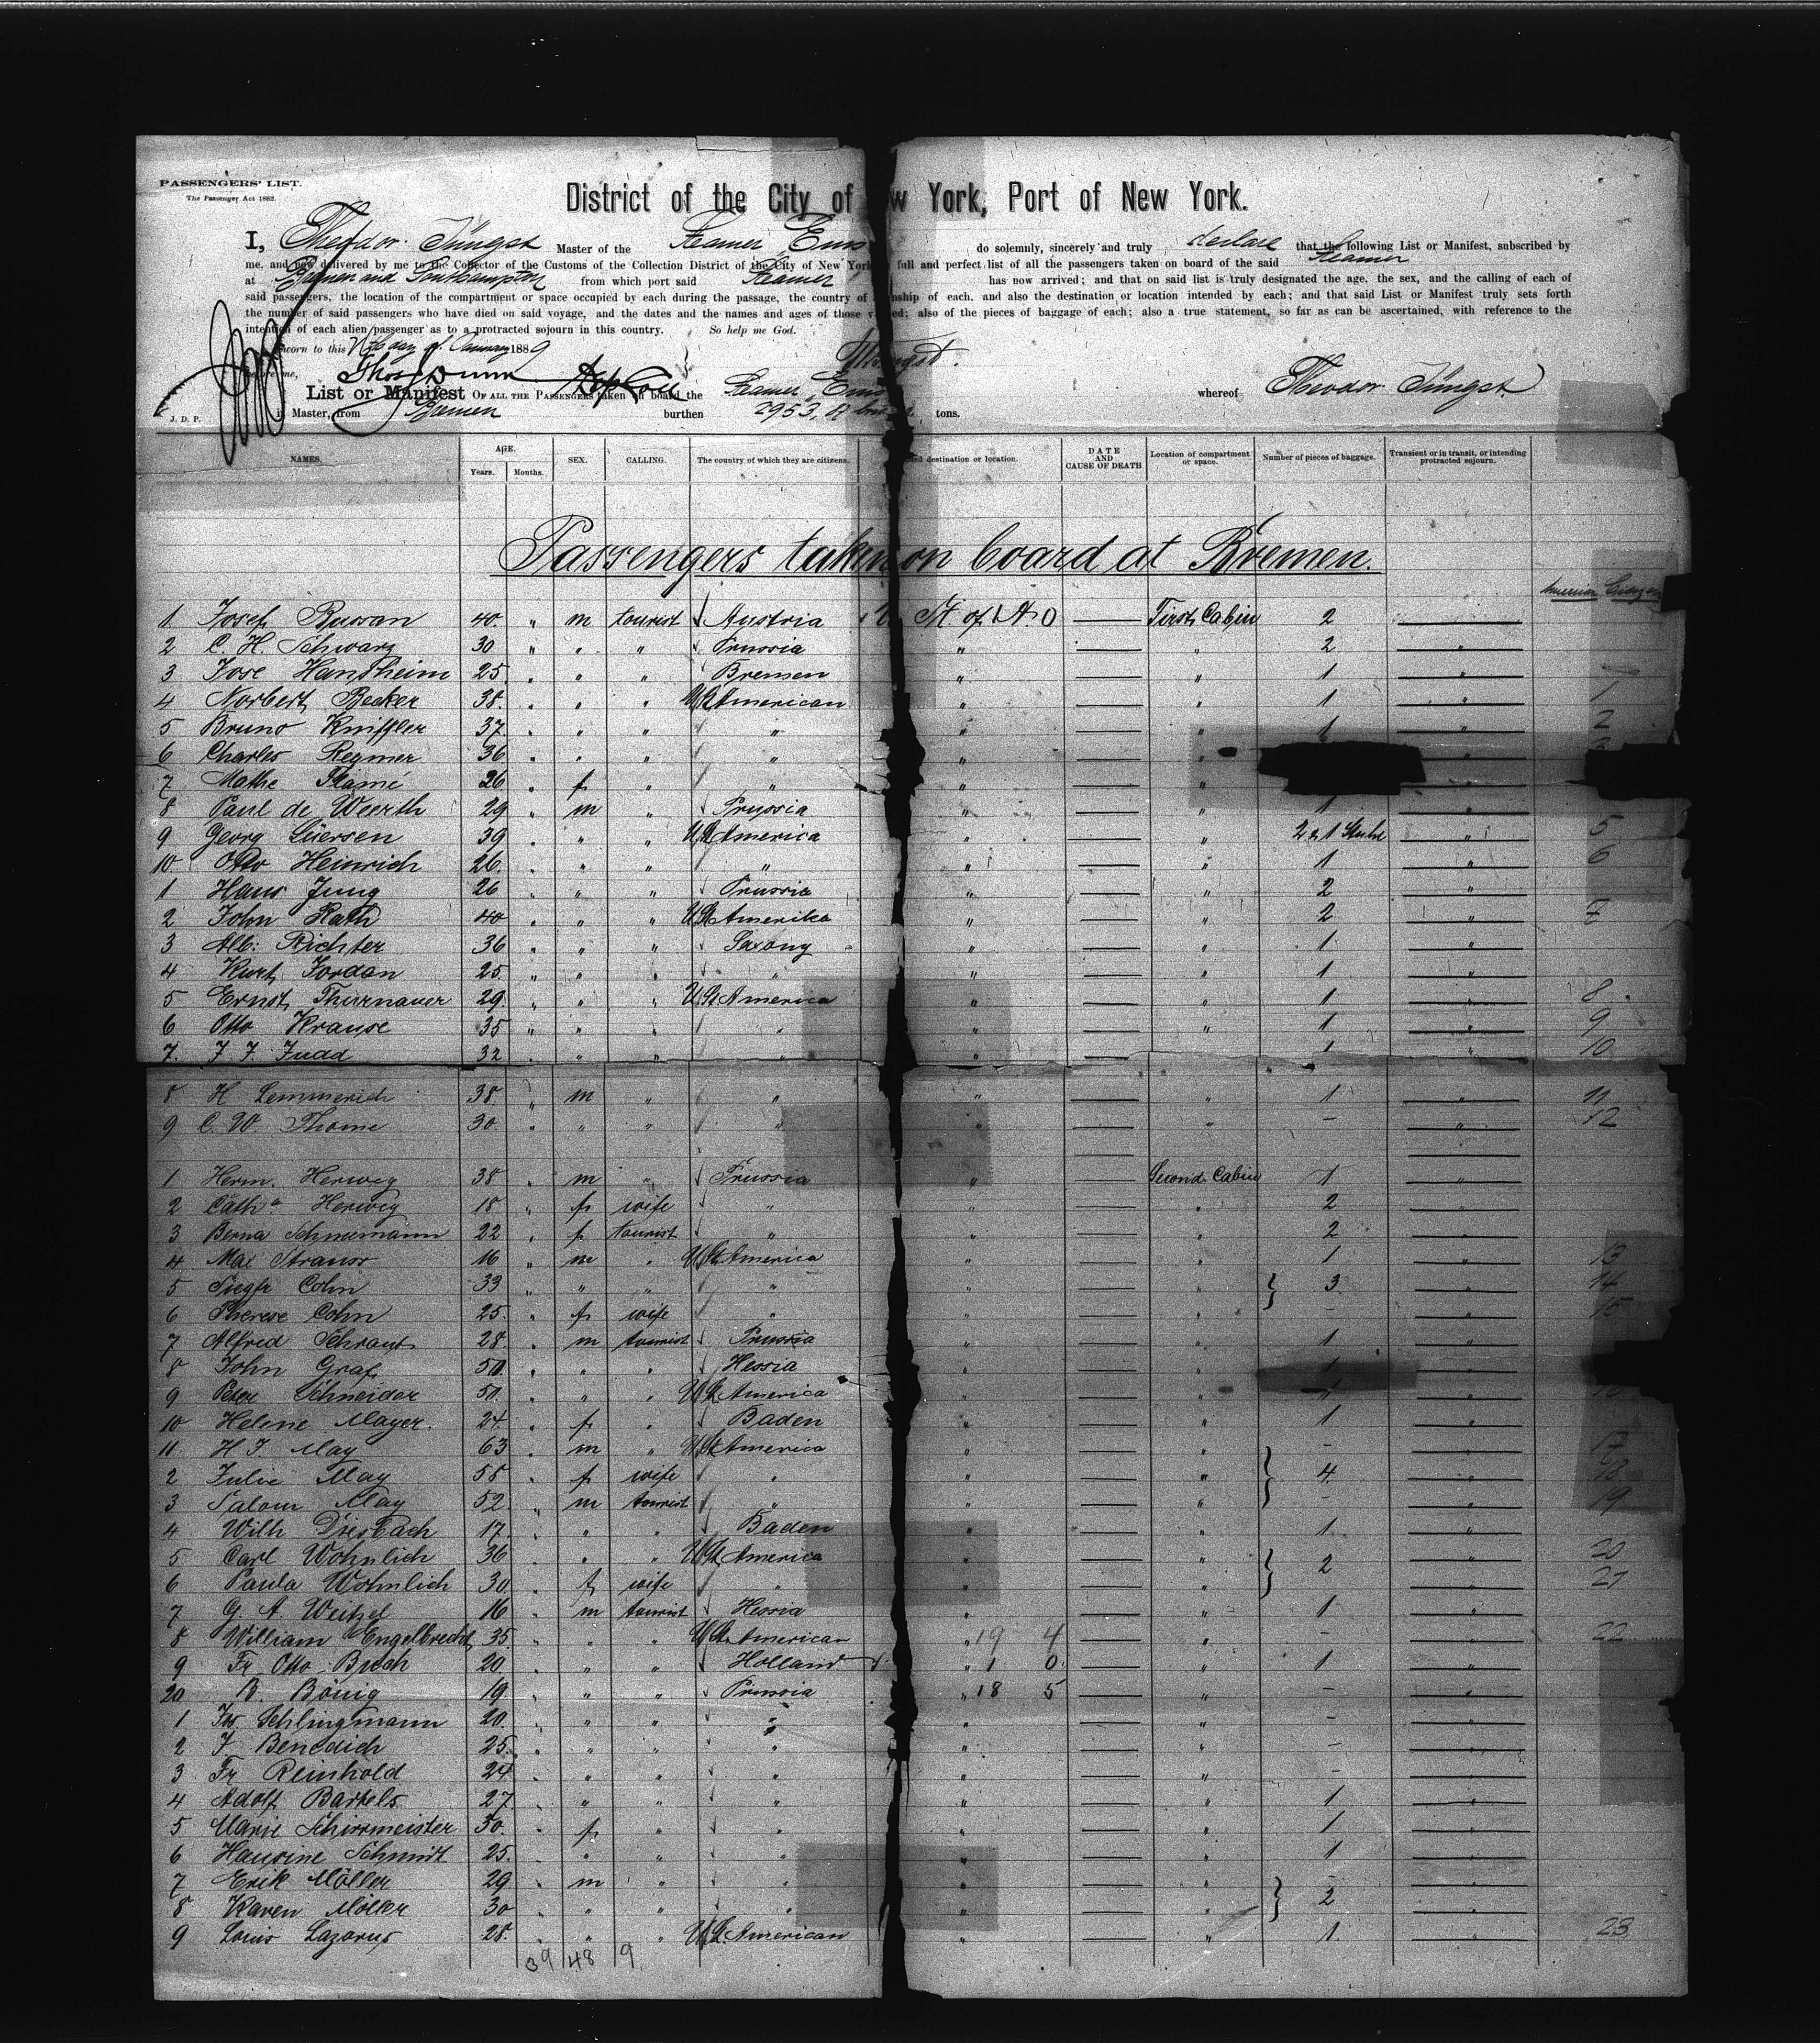 PASSENGERS' LIST.
The Passenger Act 1882.
District of the City of w York, Port of New York.
I, Theodor Jüngst Master of the Steamer Ems do solemnly, sincerely and truly declare that the following List or Manifest, subscribed by
me, and now delivered by me to the Collector of the Customs of the Collection District of the City of New York full and perfect list of all the passengers taken on board of the said Steamer
at Bremen and Southampton from which port said Steamer has now arrived; and that on said list is truly designated the age, the sex, and the calling of each of
said passengers, the location of the compartment or space occupied by each during the passage, the country of nship of each, and also the destination or location intended by each; and that said List or Manifest truly sets forth
the number of said passengers who have died on said voyage, and the dates and the names and ages of those ed; also of the pieces of baggage of each; also a true statement, so far as can be ascertained, with reference to the
intention of each alien passenger as to a protracted sojourn in this country. So help me God.
Sworn to this day of January 1889
before me, Thos Dunn ThJüngst.
List or Manifest OF ALL THE PASSENGERS taken on board the Steamer Ems whereof Theodor Jüngst
J. D. P. is Master, from Bremen burthen 2953, tons.
NAMES. AGE. Years. Months. SEX. CALLING. The country of which they are citizens. destination or location. DATE AND CAUSE OF DEATH Location of compartment or space. Number of pieces of baggage. Transient or in transit, or intending protracted sojourn.
Passengers taken on board at Bremen.
American Citizens
1 Josef Bussan 40 " m tourist Austria U St of N. O — First Cabin 2 —
2 C. H. Schwarz 30 " " " Prussia " — " 2 "
3 Jose Hantheim 25 " " " Bremen " — " 1 "
4 Norbert Becker 38 " " " U St American " — " 1 " 1
5 Bruno Kniffler 37 " " " " " — " 1 " 2
6 Charles Regmer 36 " " " " " — " "
7 Mathe Flamé 26 " f " " " — " "
8 Paul de Weerth 29 " m " Prussia " — " 1 "
9 Georg Lüersen 39 " " " U St America " — " 2 & 1 Stuhl " 5
10 Otto Heinrich 26 " " " " " — " 1 " 6
1 Hans Jung 26 " " " Prussia " — " 2 "
2 John Rath 40 " " " U St Amerika " — " 2 " 7
3 Alb: Richter 36 " " " Saxony " — " 1 "
4 Kurt Jordan 25 " " " " " — " 1 "
5 Ernst Thurnauer 29 " " " U St America " — " 1 " 8
6 Otto Krause 35 " " " " " — " 1 " 9
7. J. F. Judd 32 " " " " " — 1 " 10
8 H Lemmerich 38 " m " " " — " 1 " 11
9 C. W. Thome 30 " " " " " — " - " 12
1 Herm. Herwig 38 " m " Prussia " — Second Cabin 1 "
2 Cath.a Herwig 18 " f wife " " — " 2 "
3 Berna Schnumann 22 " f tourist " " — " 2 "
4 Max Strauss 16 " m " U St America " — " 1 " 13
5 Siegfr Cohn 33 " " " " " — " 3 " 14
6 Therese Cohn 25 " f wife " " — " - " 15
7 Alfred Schraut 28 " m tourist Prussia " — " 1 "
8 John Graf 50 " " " Hessia " — " 1 "
9 Peter Schneider 50 " " " U St America " — " " " 16
10 Helene Mayer 24 " f " Baden " — " 1 "
11 H J. May 63 " m " U St America " — " - " 17
2 Julie May 55 " f wife " " — " 4 " 18
3 Salom May 52 " m tourist " " — " - " 19
4 Wilh Diesbach 17 " " " Baden " — " 1 "
5 Carl Wohnlich 36 " " " U St America " — " 2 " 20
6 Paula Wohnlich 30 " f wife " " — " " 21
7 G. A. Weitzel 16 " m tourist Hessia " — " 1 "
8 William Engelbrecht 35 " " " U St American " 19 4 — " - " 22
9 Fr Otto Buch 20 " " " Holland " 1 0 — " 1 "
20 B. Bönig 19 " " " Prussia " 18 5 — " - "
1 Fr. Schlingmann 20 " " " " " — " - "
2 J Benedich 25 " " " " " — " - "
3 Fr Reinhold 24 " " " " " — " - "
4 Adolf Bartels 27 " " " " " — " 1 "
5 Marie Schirrmeister 30 " f " " " — " 1 "
6 Hausine Schmidt 25 " " " " " — " 1 "
7 Erik Möller 29 " m " " " — " - "
8 Karen Möller 30 " " " " " — " 2 "
9 Louis Lazarus 28 " " " U St American " — " 1 " 23
39 48 9